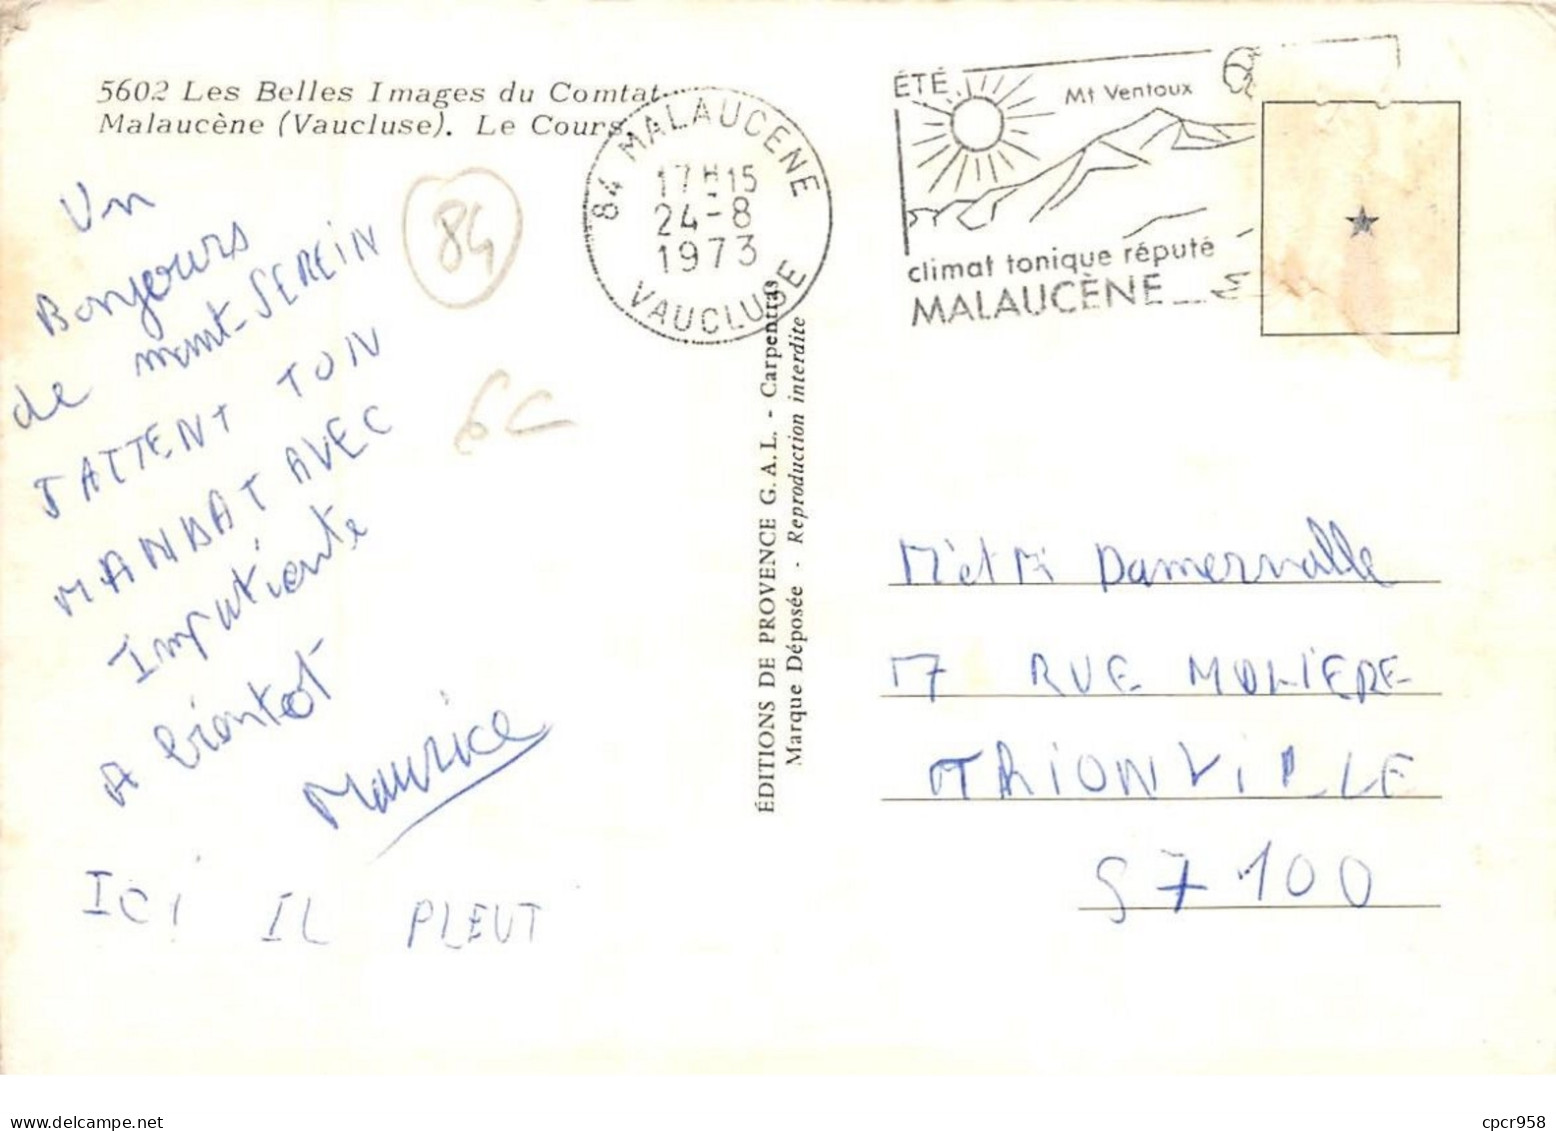 5602 Les Belles Images du Comtat
Malaucène (Vaucluse). Le Cours
84 MALAUCENE
17H15
24-8
1973
VAUCLUSE
ÉTÉ
Mt Ventoux
climat tonique réputé
MALAUCÈNE
Un
Bonjours
de mont-SEREIN
J'ATTENT TON
MANDAT AVEC
Impatiente
A bientot
Maurice
ICI IL PLEUT
84
6C
ÉDITIONS DE PROVENCE G. A. L. - Carpentras
Marque Déposée - Reproduction interdite
M et M Damervalle
17 RUE MOLIERE
THIONVILLE
57100
www.delcampe.net
cpcr958